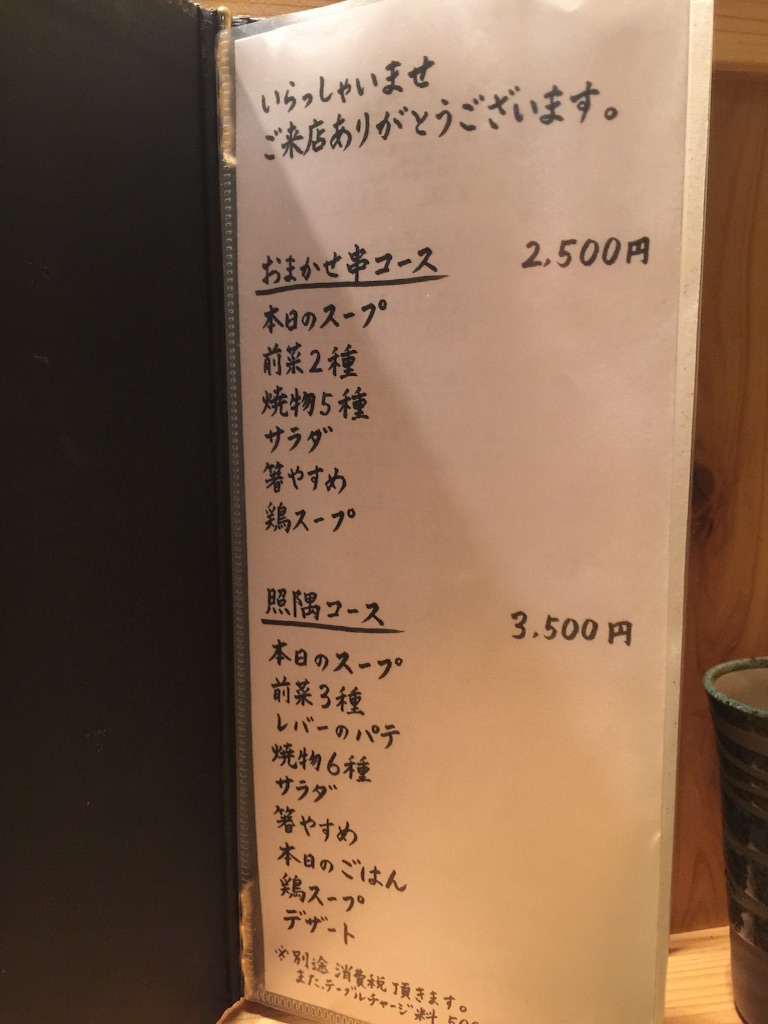 いらっしゃいませ
ご来店ありがとうございます。
おまかせ串コース 2,500円
本日のスープ
前菜2種
焼物5種
サラダ
箸やすめ
鶏スープ
照隅コース 3,500円
本日のスープ
前菜3種
レバーのパテ
焼物6種
サラダ
箸やすめ
本日のごはん
鶏スープ
デザート
※別途消費税頂きます。
また、テーブルチャージ料